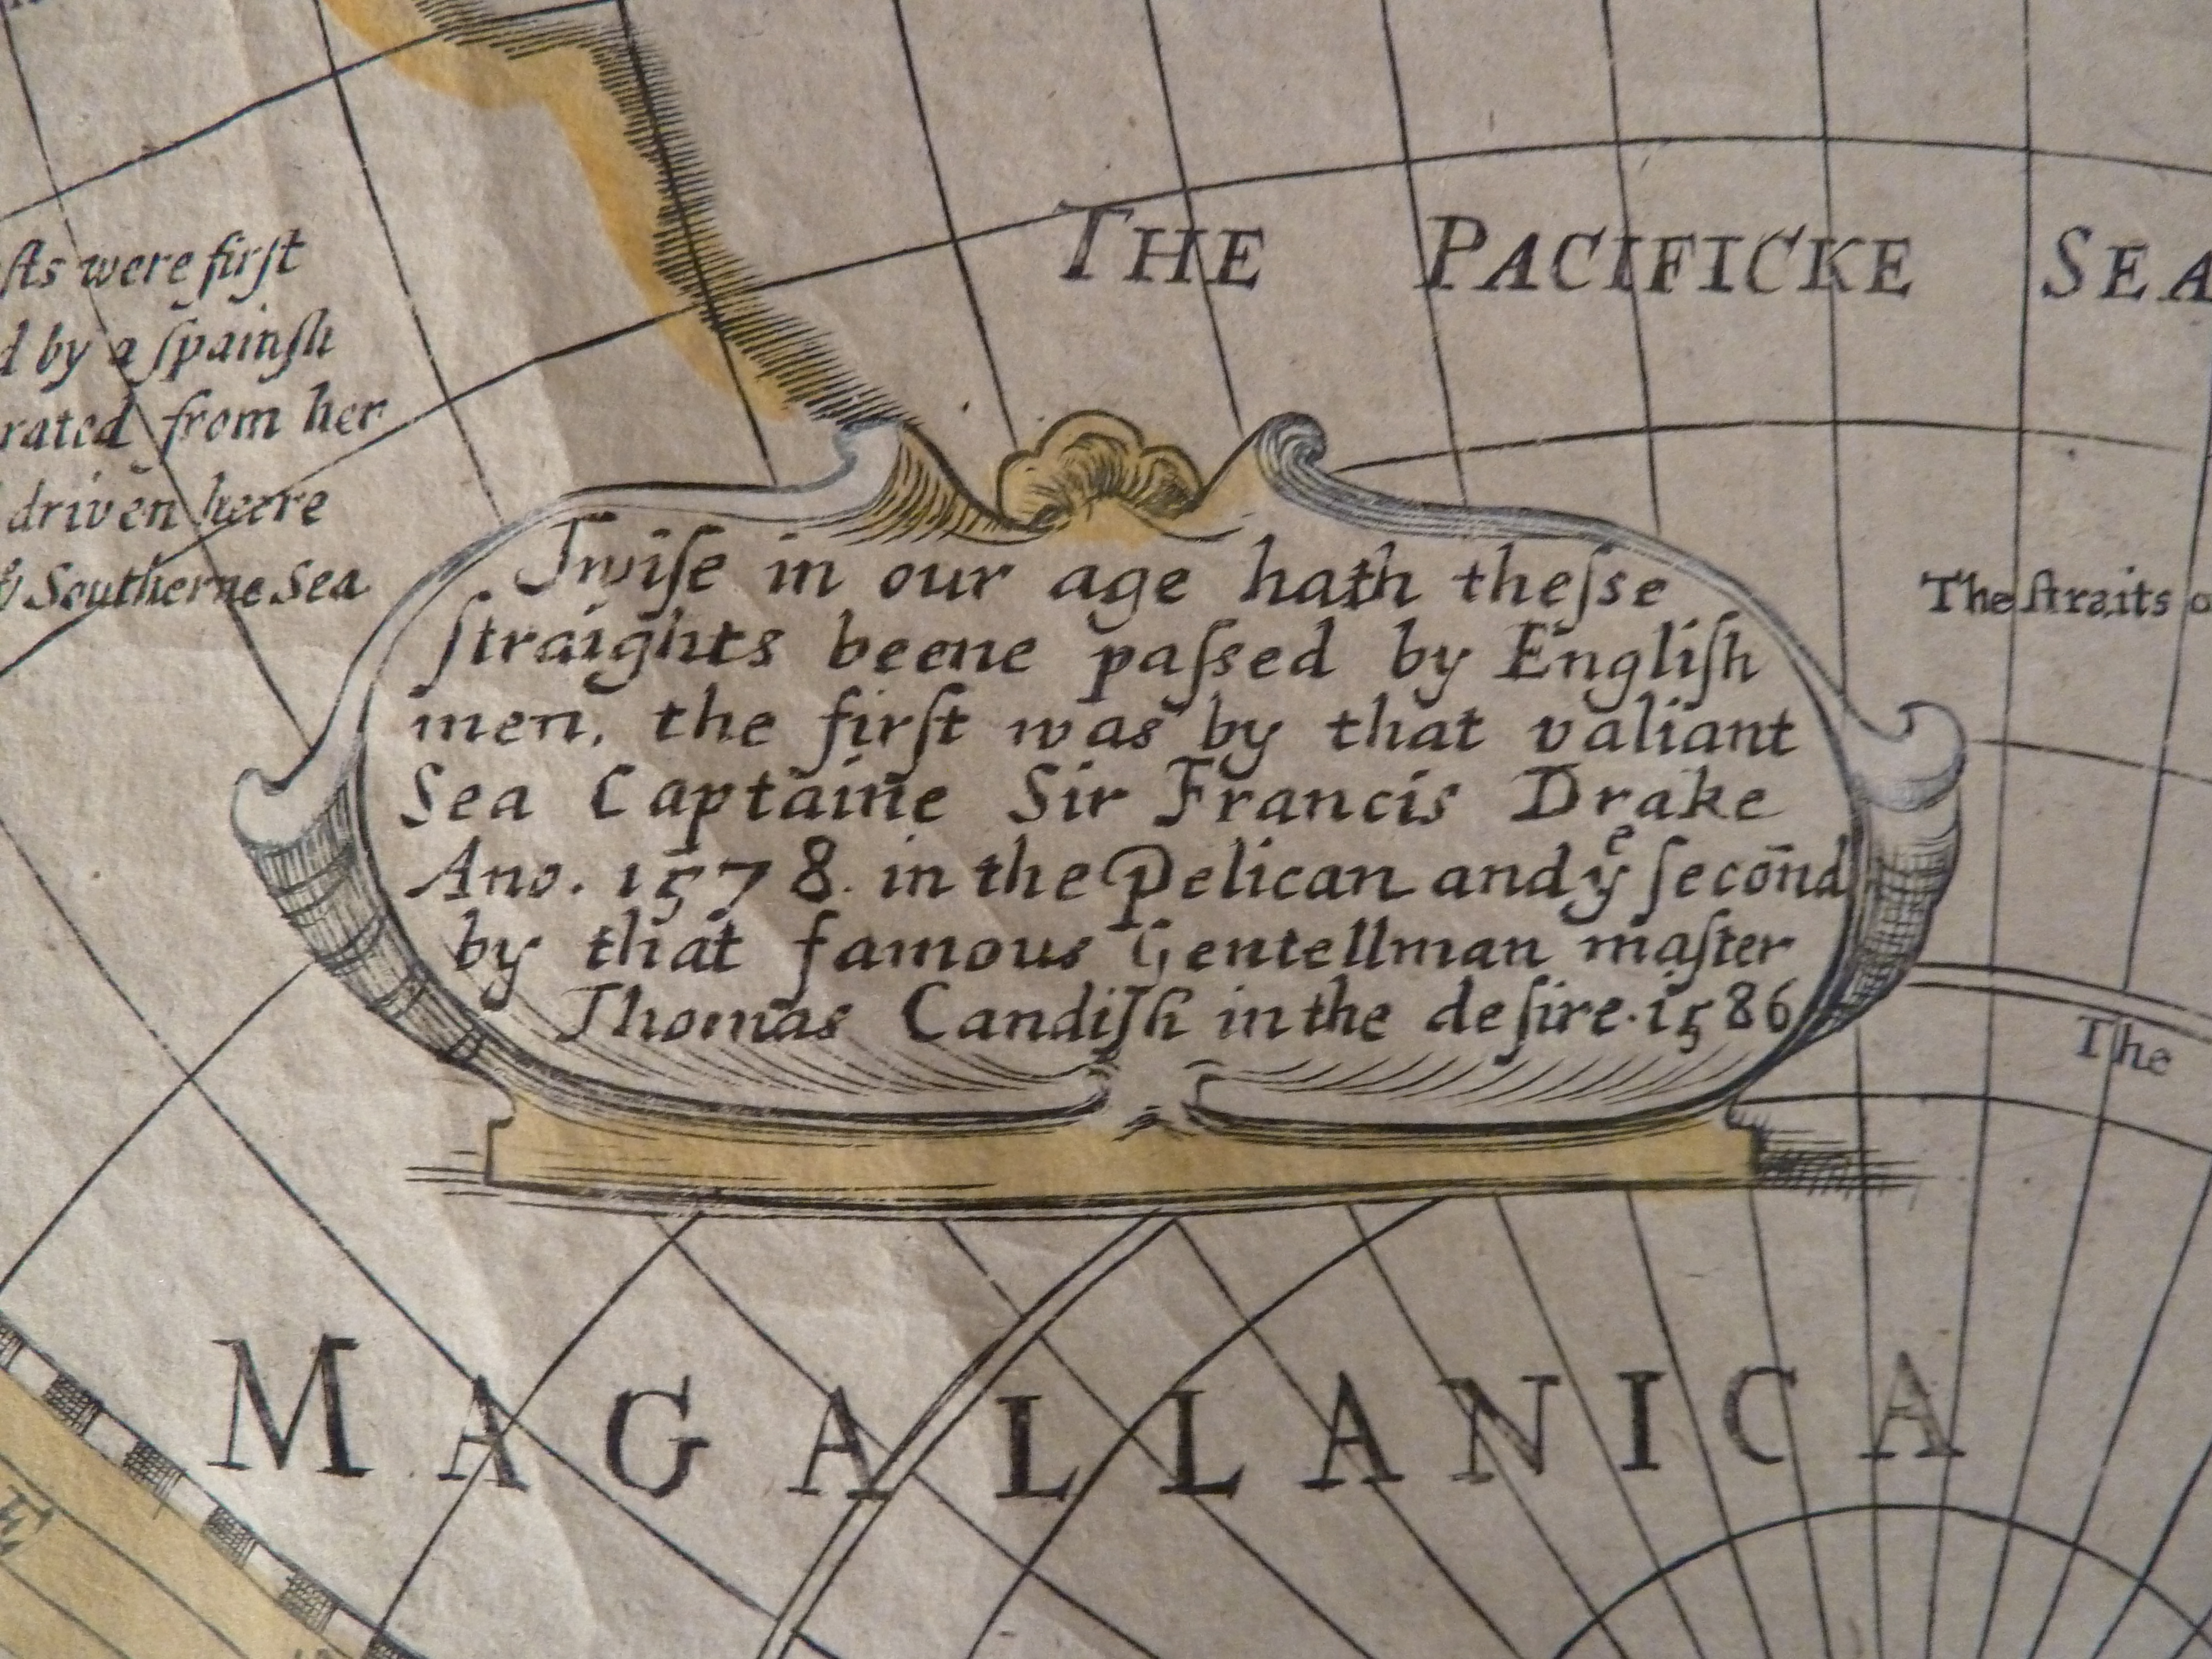 THE PACIFICKE SEA
ſts were firſt
by a ſpainſh
rated from her
driven heere
Southerne Sea
Twiſe in our age hath theſse
ſtraights beene paſsed by Engliſh
men, the firſt was by that valiant
Sea Captaine Sir Francis Drake
Ano. 1578. in the Pelican and yͤ ſecōnd
by that famous Gentellman maſter
Thomas Candiſh in the deſire. 1586
The ſtraits o
The
MAGALLANICA
E